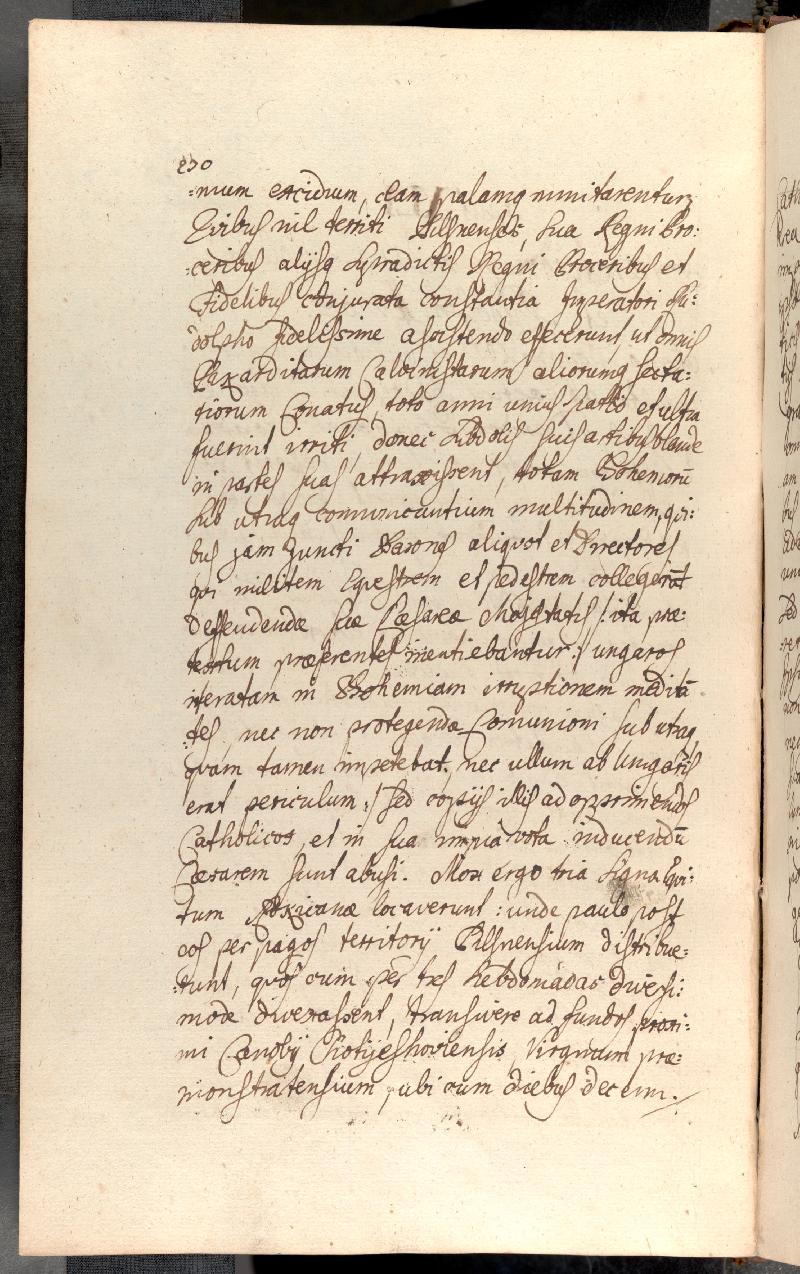 :nium excidium, clam palamq minitarentur,
Quibus nil territi Pilsnenses, sua Regni Pro:
:ceribus alijsq supradictis Regni Proceribus et
Fidelibus conjurata constantia Imperatori Ru:
dolpho fidelissime assistendo effecerunt, ut omnis
Pikarditarum Calvinistarum aliorumq secta:
riorum Conatus, toto anni unius spatio et ultra
fuerint irriti, donec subdolis suis artibus blande
in partes suas attraxissent, totam Bohemorū
sub utraq communicantium multitudinem, qui:
bus jam juncti Barones aliquot et Directores
qui militem Equestrem et pedestrem collegerāt
Deffendendæ suæ Cæsareæ Majestatis /: ita præ:
textum præferentes mentiebantur :/ ungaros
iteratam in Bohemiam irruptionem meditā
:tes, nec non protegendæ Comunioni sub utraq
quam tamen impetebat, nec ullum ab Ungaris
erat periculum :/ Sed copijs illis ad opprimendos
Catholicos, et in sua impia vota inducendū
Cæsarem sunt abusi. Mox ergo tria signa Equi:
tum Rokicanæ locaverunt: unde paulo post
eos per pagos territorij Pilsnensium distribue:
:runt, quos cum per tres hebdomadas diversi:
mode divexassent, transivere ad fundos proxi:
mi Cænobij Chotieshoviensis, Virginum præ:
monstratensium, ubi cum diebus decem.